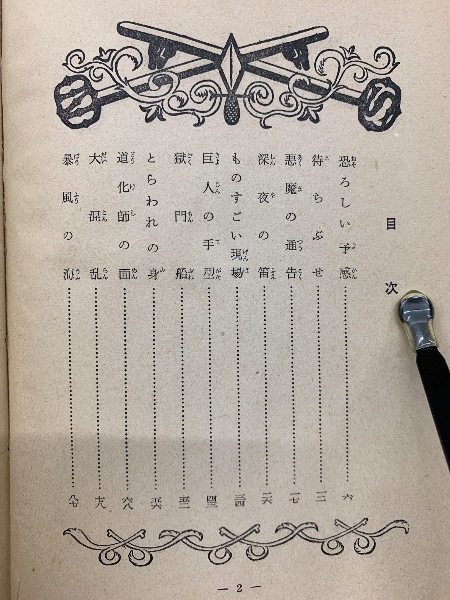 目次
恐ろしい予感……六
待ちぶせ……
悪魔の通告……一七
深夜の箱……二六
ものすごい現場……三四
巨人の手型……四三
獄門船……
とらわれの身……
道化師の面……六八
大混乱……
暴風の
— 2 —